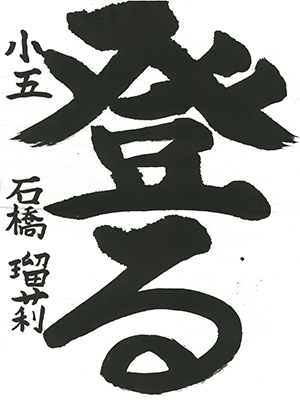 登る
小五
石橋 瑠莉